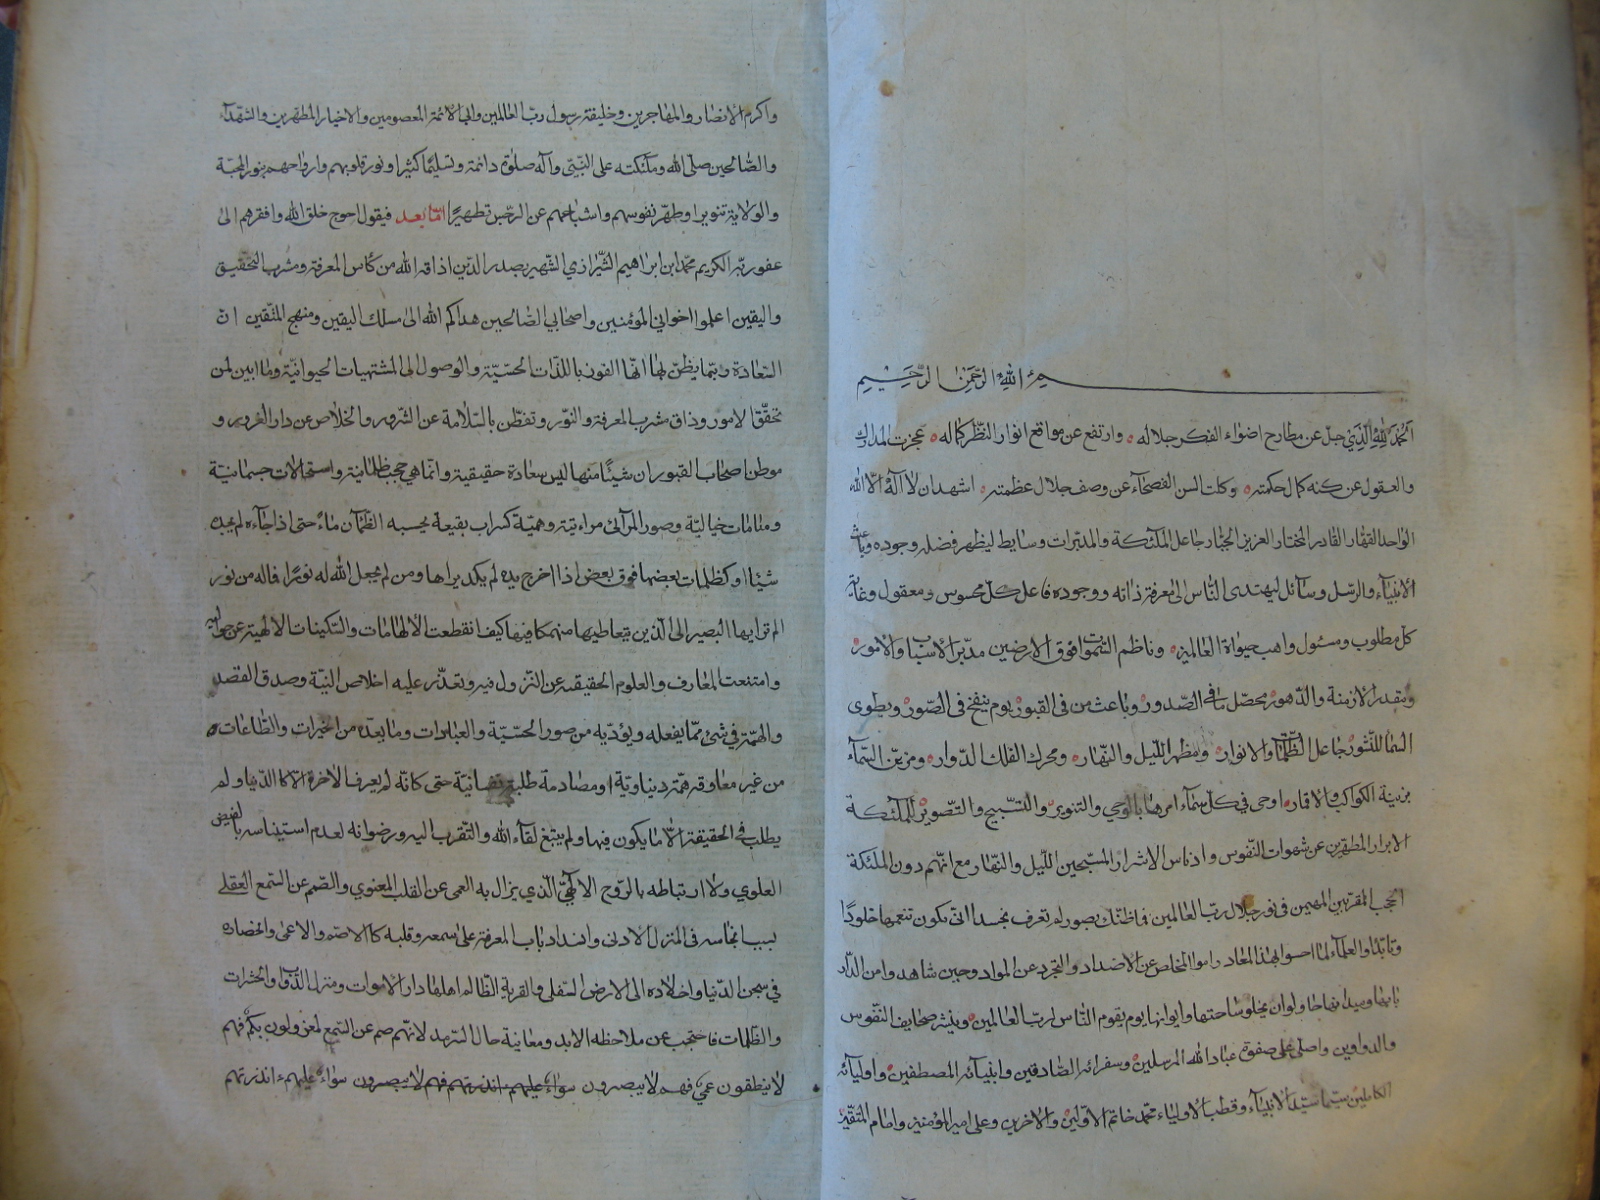 بسم الله الرحمن الرحيم
الحمد لله الذي جل عن مطارح اضواء الفكر جلاله وارتفع عن مواقع انوار النظر كماله عجزت المدارك
والعقول عن كنه كمال حكمته وكلت السن الفصحاء عن وصف جلال عظمته اشهد ان لا اله الا الله
الواحد القهار القادر المختار العزيز الجبار جاعل الملئكة والمدبرات وسايط ليظهر فضله وجوده وباعث
الانبياء والرسل وسائل ليهتدى الناس الى معرفة ذاته ووجوده فاعل كل محسوس ومعقول وغاية
كل مطلوب ومسئول واهب حيوة العالمين وناظم السموات فوق الارضين مدبر الاسباب والامور
ومقدر الازمنة والدهور محصل ما في الصدور وباعث من في القبور يوم ينفخ في الصور ويطوى
السماء للنشور جاعل الظلمات والانوار ومظهر الليل والنهار ومحرك الفلك الدوار ومزين السماء
بزينة الكواكب والاقمار اوحى في كل سماء امرها بالوحي والتنوير والتسبيح والتصوير للملئكة
الابرار المطهرين عن شهوات النفوس وادناس الاشرار المسبحين الليل والنهار مع انهم دون الملئكة
الحجب المقربين المهيمين في نور جلال رب العالمين فما ظنك بصور لم تعرف بجسد انى يكون تنعمها خلودا
وتابدا والعلماء لما احسوا بهذا المعاد راموا الخلاص عن الاضداد والتجرد عن المواد وحين شاهدوا من الدار
يوم يقوم الناس لرب العالمين وينشر صحايف النفوس
والدواوين واصلى على صفوة عباد الله المرسلين وسفرائه الصادقين وانبيائه المصطفين واوليائه
الكاملين سيما سيد الانبياء وقطب الاولياء محمد خاتم الاولين والاخرين وعلى امير المؤمنين وامام المتقين
واكرم الانصار والمهاجرين وخليفة رسول رب العالمين وابى الائمة المعصومين والاخيار المطهرين والشهداء
والصالحين صلى الله وملئكته على النبي وآله صلوة دائمة وتسليما كثيرا ونور قلوبهم وارواحهم بنور المحبة
والولاية تنويرا وطهر نفوسهم واشباحهم عن الرجس تطهيرا اما بعد فيقول احوج خلق الله وافقرهم الى
عفو ربه الكريم محمد ابن ابراهيم الشيرازي الشهير بصدر الدين اذاقه الله من كأس المعرفة وشرب التحقيق
واليقين اعلموا اخواني المؤمنين واصحابي الصالحين هداكم الله الى مسلك اليقين ومنهج المتقين ان
السعادة ربما يظن لها انها الفوز باللذات الحسية والوصول الى المشتهيات الحيوانية وما ابين لمن
تحقق الامور وذاق مشرب المعرفة والنور وتفطن بالسلامة عن الشرور والخلاص عن دار الغرور و
موطن اصحاب القبور ان شيئا منها ليس سعادة حقيقية وانما هي حجب ظلمانية واستحالات جسمانية
ومنامات خيالية وصور المرآئى مراءيته وهمية كسراب بقيعة يحسبه الظمآن ماء حتى اذا جآءه لم يجده
شيئا او كظلمات بعضها فوق بعض اذا اخرج يده لم يكد يراها ومن لم يجعل الله له نورا فماله من نور
الم تر ايها البصير الى الذين يتعاطيها منهمكا فيها كيف انقطعت الالهامات والسكينات الالهية عن حواليه
وامتنعت المعارف والعلوم الحقيقية عن النزول فيه وتعذر عليه اخلاص النية وصدق القصد
والهمة في شئ مما يفعله ويؤديه من صور الحسية والعبادات وما يعده من الخيرات والطاعات
من غير معاوقة همة دنياوية او مصادمة طلبة نفسانية حتى كانه لم يعرف الآخرة الا كالدنيا ولم
يطلب في الحقيقة الا ما يكون فيها ولم يبتغ لقآء الله والتقرب اليه ورضوانه لعدم استيناسه بالفيض
العلوي ولا ارتباطه بالروح الالهي الذي يزال به العمى عن القلب المعنوي والصم عن السمع العقلي
بسبب انحباسه في المنزل الادنى وانسداد باب المعرفة على سمعه وقلبه كالاصم والاعمى وانحصاره
في سجن الدنيا واخلاده الى الارض السفلى والقرية الظالم اهلها دار الاموات ومنزل الذواب والحشرات
والظلمات فاحتجب عن ملاحظه الابد ومعاينة حال السرمد لانهم صم عن السمع لمعزولون بكم فهم
لا ينطقون عمي فهم لا يبصرون سواء عليهم ءانذرتهم فهم لا يبصرون سواء عليهم ءانذرتهم